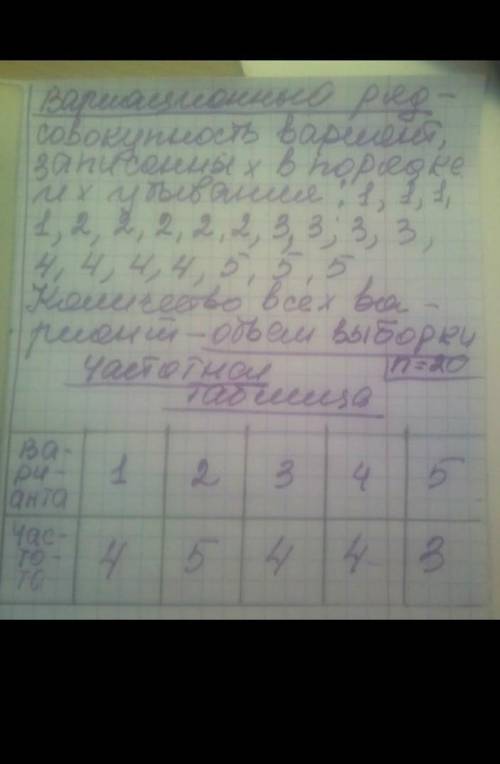 Вариационный ряд-
совокупность вариант,
записанных в порядке
их убывания: 1, 1, 1,
1, 2, 2, 2, 2, 2, 3, 3, 3, 3,
4, 4, 4, 4, 5, 5, 5
Количество всех ва-
риант-объем выборки
Частотная n=20
таблица
Ва-
ри-
анта 1 2 3 4 5
Час-
то-
та 4 5 4 4 3